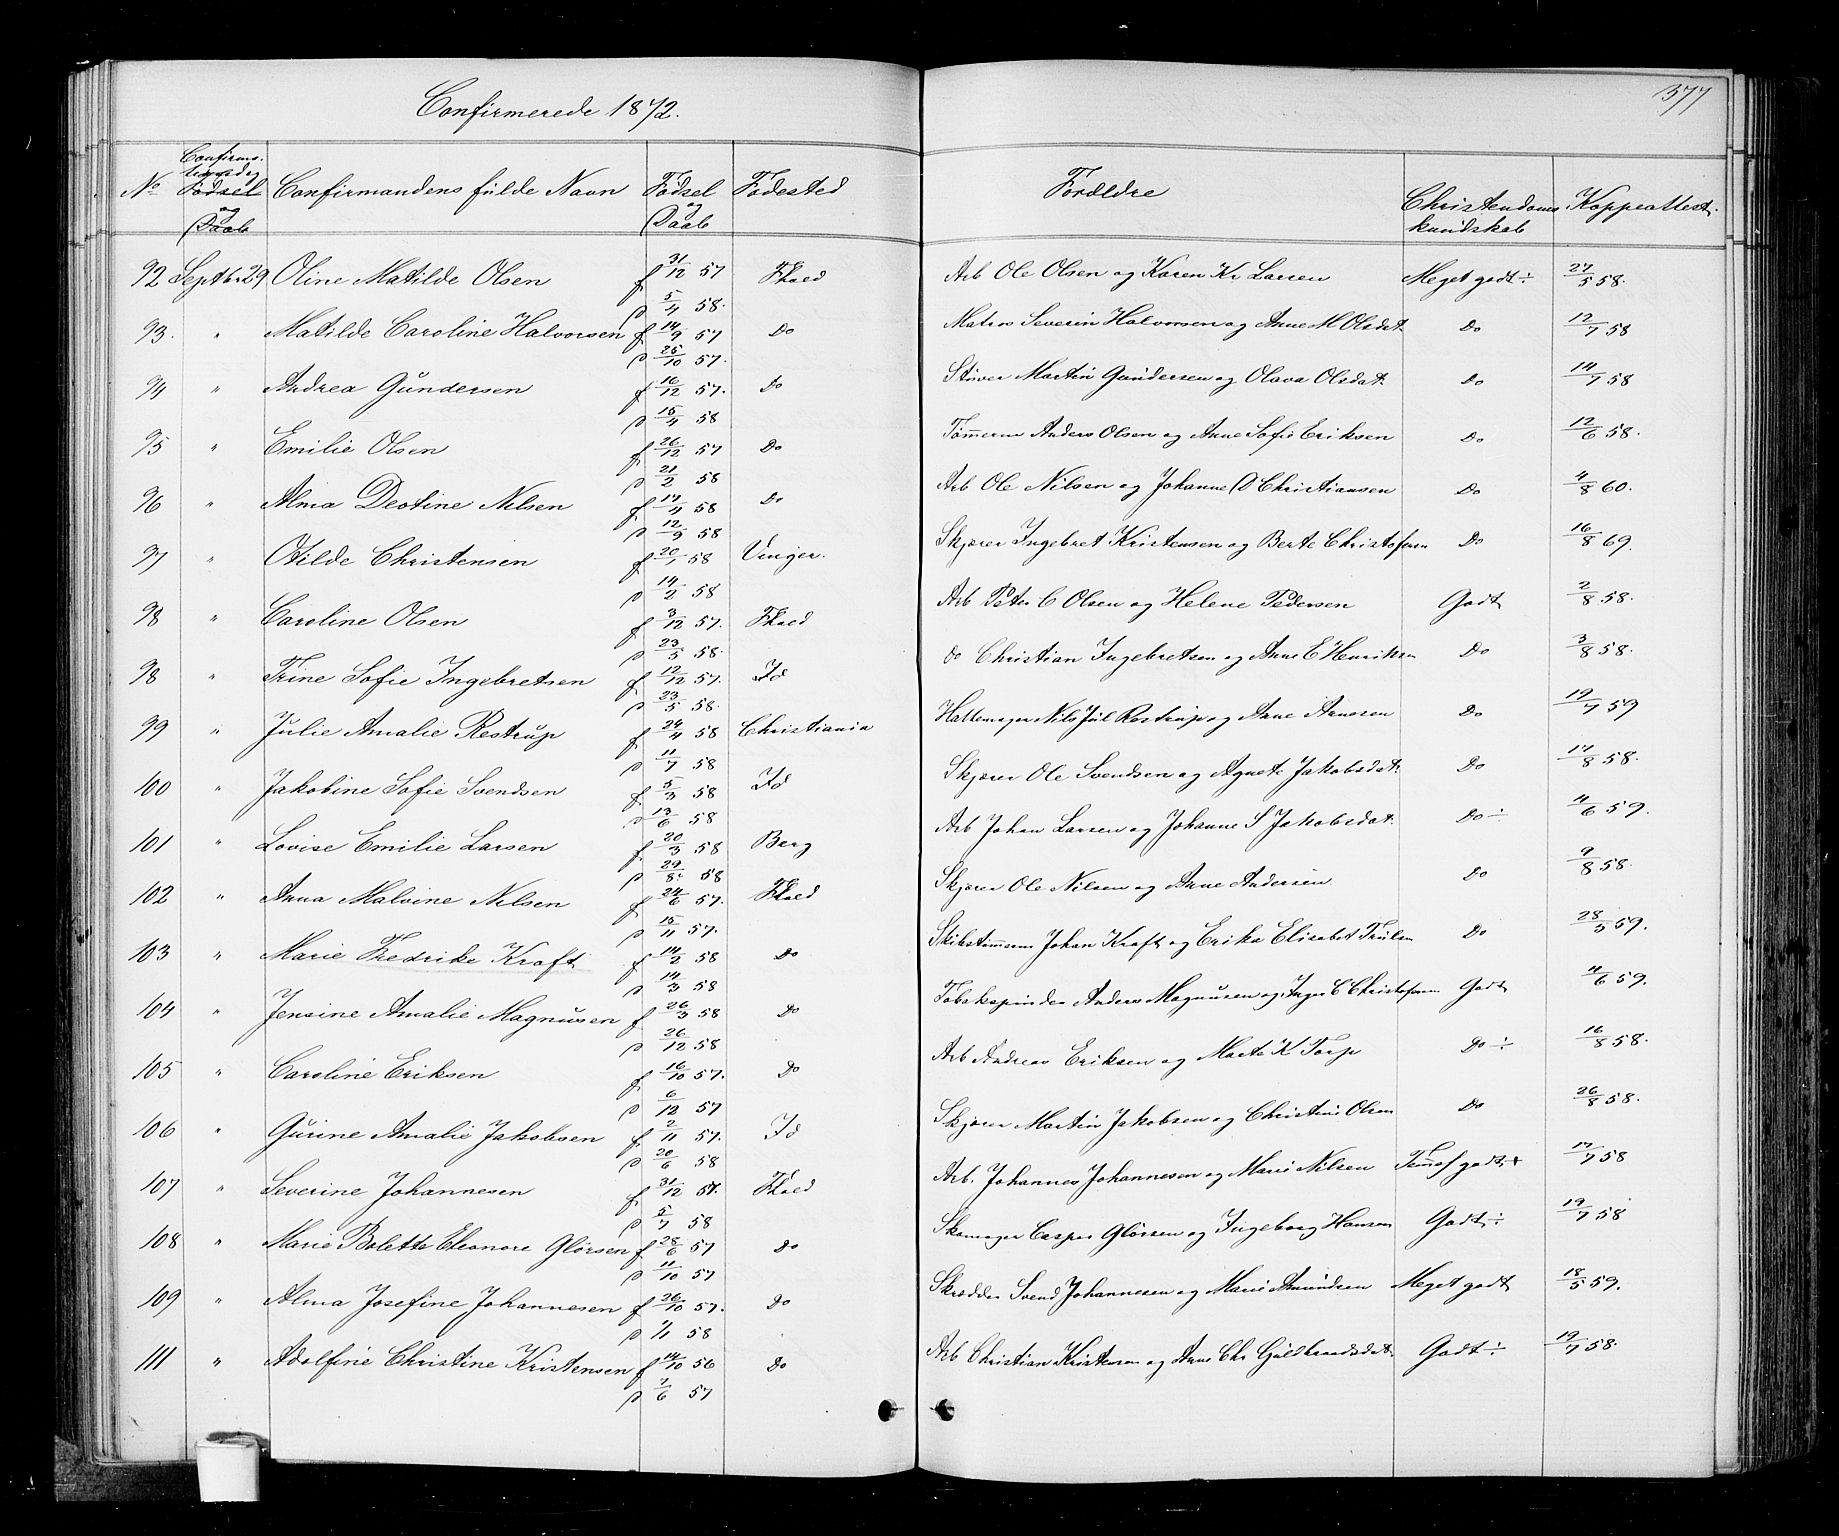 Confirmerede 1872.
377
No Confirmationsdag Fødsel og Daab Confirmandens fulde Navn Fødsel og Daab Fødested Forældre Christendoms kundskab Koppeattest.
92 Septbr 29 Oline Matilde Olsen f 31/12 57 Fhald Arb Ole Olsen og Karen Kr Larsen Meget godt ÷ 27/5 58.
D 5/4 58.
93. " Matilde Caroline Halvorsen f 14/9 57 Do Matros Severin Halvorsen og Anne M Olsdat. Do 12/7 58
D 25/10 57.
94 " Andrea Gundersen f 16/12 57. Do Støver Martin Gundersen og Olava Olsdat. Do 14/7 58
D 15/4 58
95 " Emilie Olsen f 26/12 57 Do Tømmerm Anders Olsen og Anne Sofie Eriksen Do 12/6 58.
D 21/2 58
96 " Alma Deotine Nilsen f 17/4 58 Do Arb Ole Nilsen og Johanne D Christiansen Do 4/8 60.
D 12/9 58
97 " Otilde Christensen f 20/1 58 Vinger. Skjærer Ingebret Kristensen og Berte Christofersen Do 16/8 69.
D 14/2 58
98 " Caroline Olsen f 3/12 57. Fhald Arb Peter C Olsen og Helene Pedersen Godt 2/8 58.
D 23/5 58.
98 " Trine Sofie Ingebretsen f 12/12 57. Id do Christian Ingebretsen og Anne E Henriksen Do 3/8 58.
D 23/5 58.
99 " Julie Amalie Restrup f 24/4 58 Christiania Hattemager Nils Jul Rostrup og Anne Arnesen Do 19/7 59
D 11/7 58
100 " Jakobine Sofie Svendsen f 5/3 58 Id Skjærer Ole Svendsen og Agnete Jakobsdat. Do 17/8 58.
D 13/6 58
101 " Lovise Emilie Larsen f 20/3 58 Berg Arb Johan Larsen og Johanne S Jakobsdat. Do ÷ 11/6 59.
D 29/8 58
102 " Anna Malvine Nilsen f 24/6 57. Fhald Skjærer Ole Nilsen og Anne Andersen Do 9/8 58.
D 15/11 57.
103 " Marie Fredrike Kraft f 14/2 58 Do Skibstømmerm Johan Kraft og Erika Elisabet Trulsen Do 28/5 59.
D 14/3 58
104 " Jensine Amalie Magnusen f 26/3 58 Do Tobakspinder Anders Magnusen og Inger C Christofersen Godt 11/6 59.
D 26/12 58
105 " Caroline Eriksen f 16/10 57. Do Arb Andreas Eriksen og Marte K Torp Do ÷ 16/8 58.
D 6/12 57
106 " Gurine Amalie Jakobsen f 2/11 57. Id Skjærer Martin Jakobsen og Christine Olsen Do 26/8 58.
D 20/6 58
107 " Severine Johannesen f 31/12 57. Fhald Arb. Johannes Johannesen og Marie Nilsen Temmel godt + 17/7 58
D 5/7 58
108 " Marie Bolette Eleonore Glørsen f 28/6 57 Do Skomager Casper Glørsen og Ingeborg Hansen Godt ÷ 19/7 58
D 11/10 57
109 " Alma Josefine Johannesen f 26/10 57. Do Skrædder Svend Johannesen og Marie Amundsen Meget godt 18/5 59.
D 1/1 58
111 " Adolfine Christine Kristensen f 14/10 56 Do Arb Christian Kristensen og Anne Chr Guldbrandsdat. Godt ÷ 19/7 58.
D 7/6 57